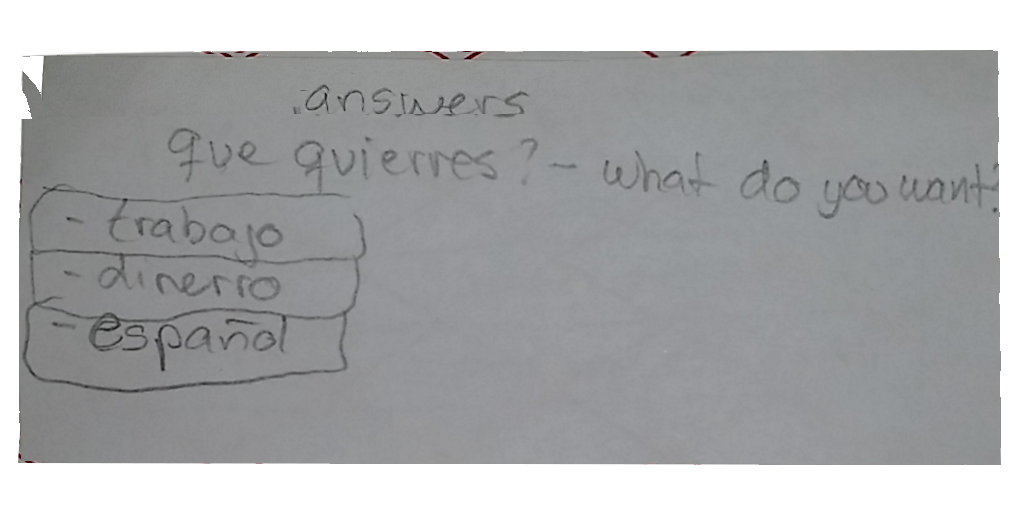 .answers
que quierres? - what do you want?
- trabajo
- dinerro
- español